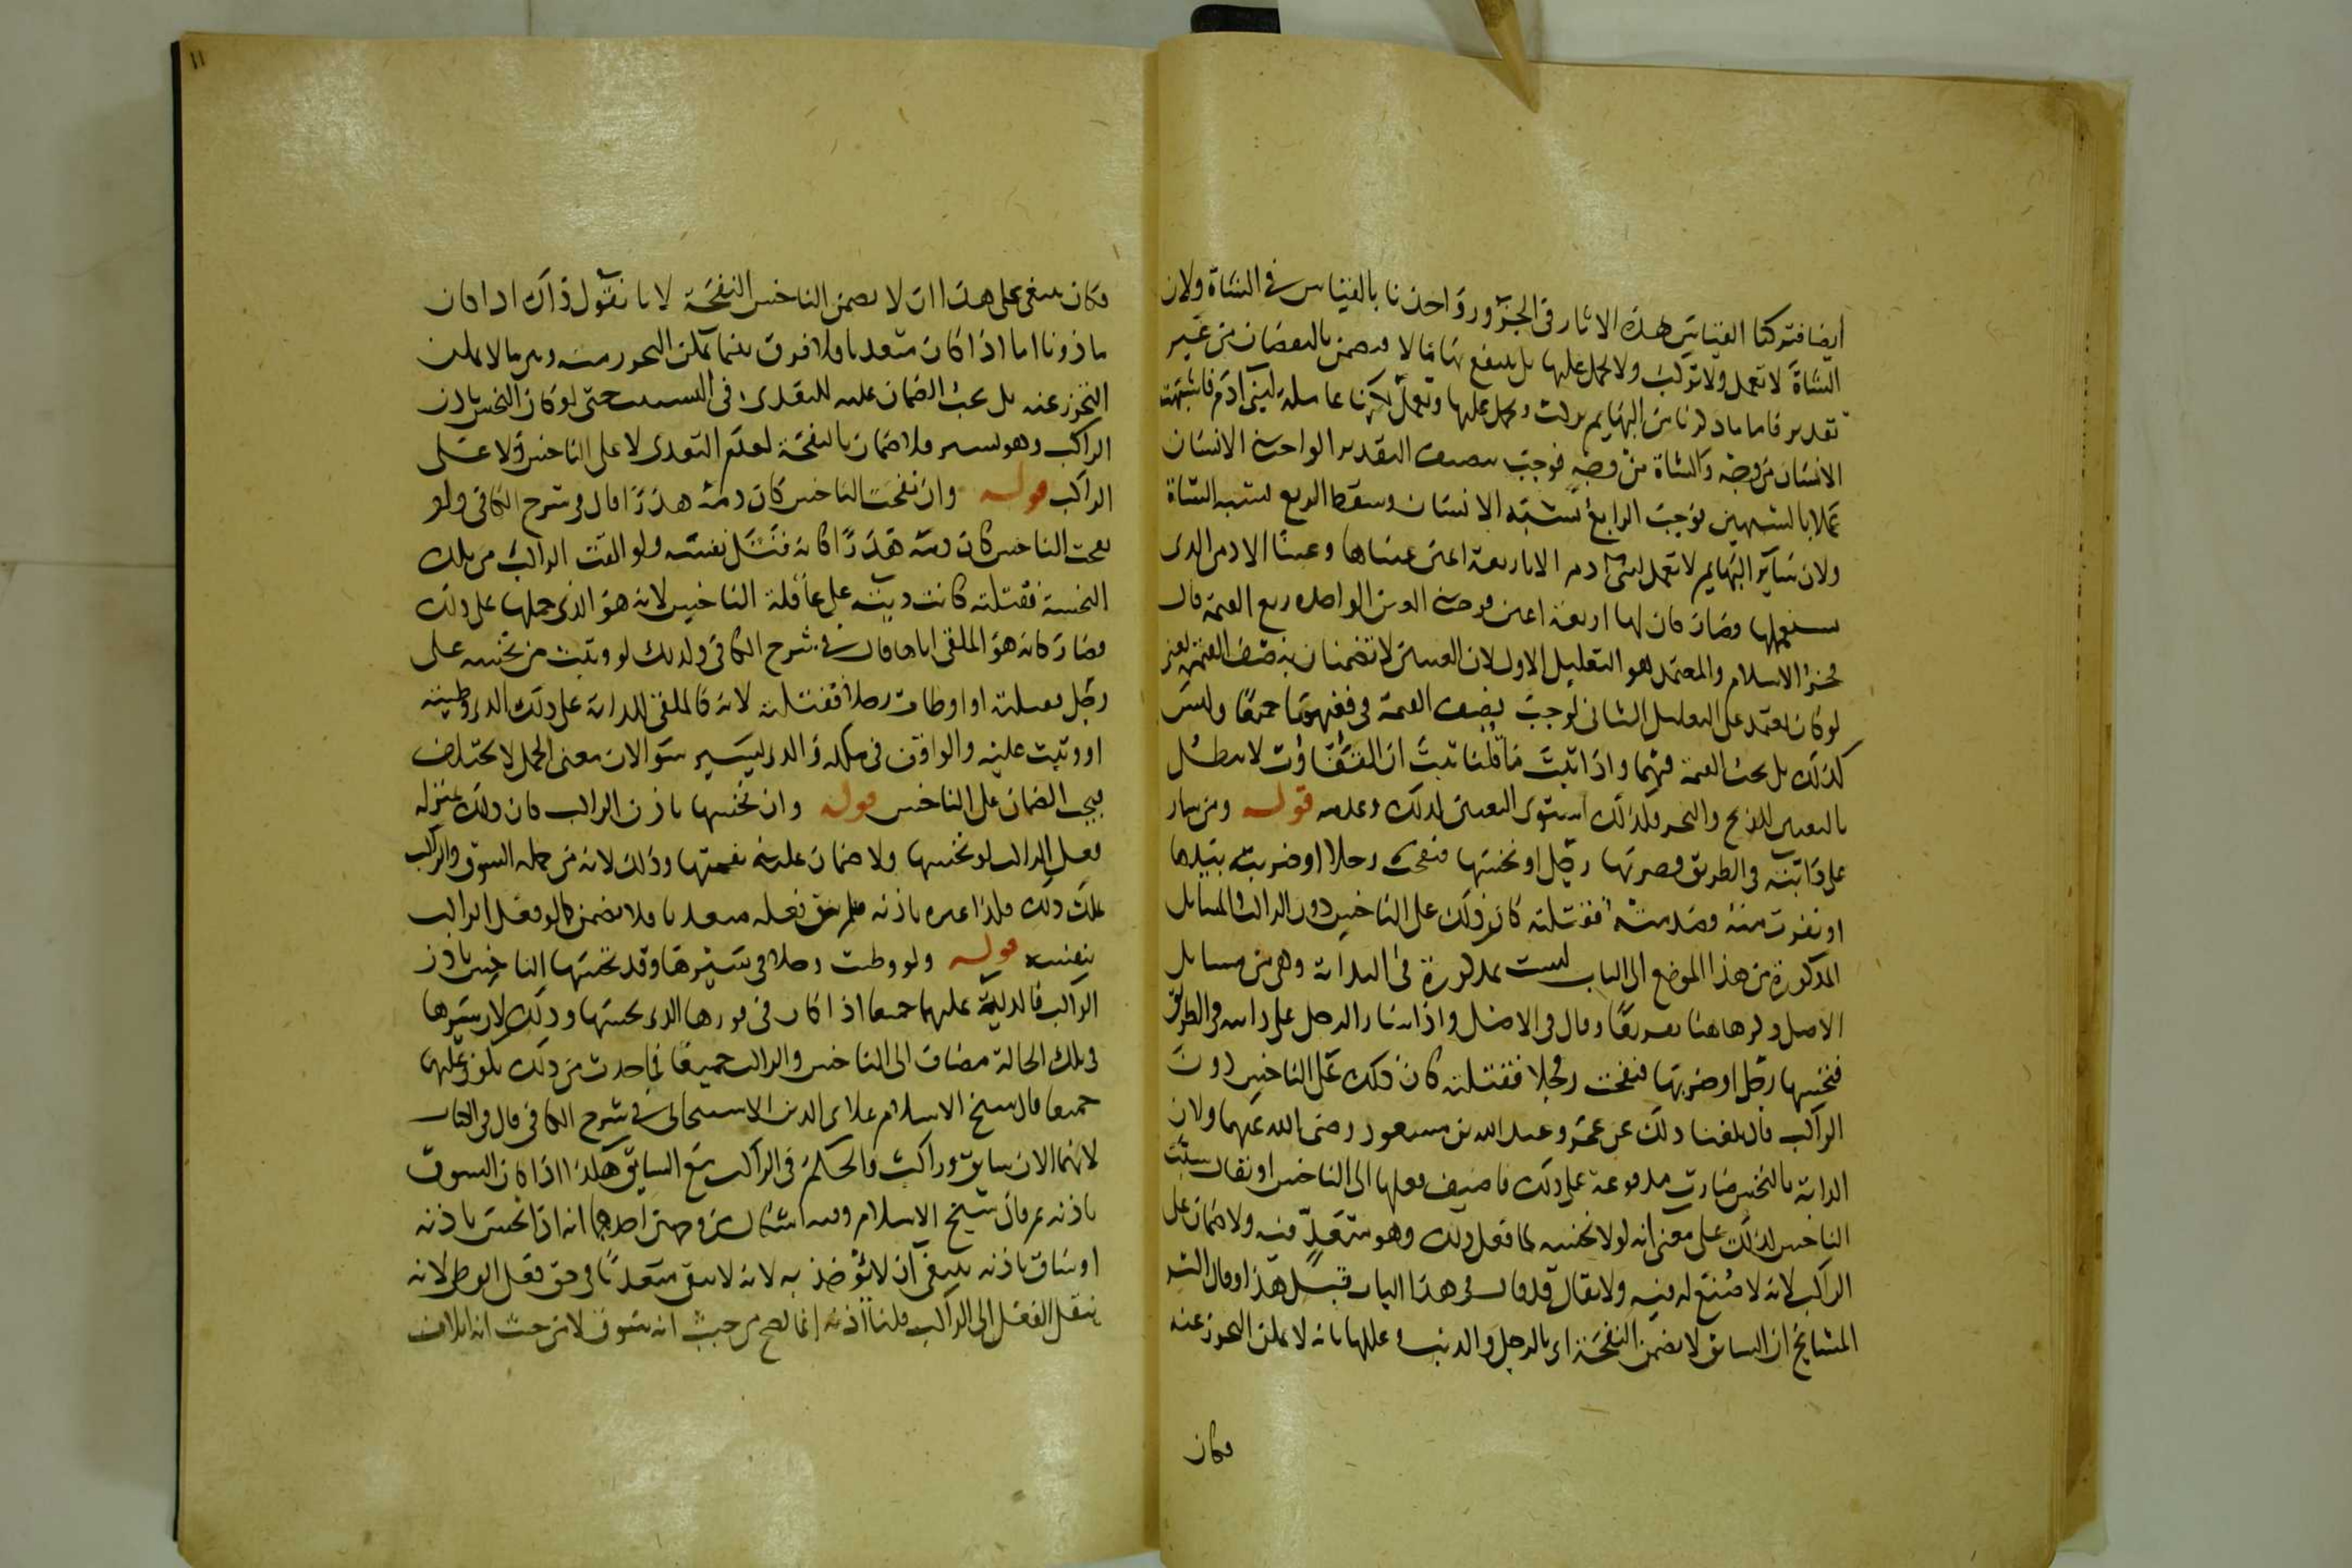 أيضا فتركنا القياس بهذه الاثار فى الجزور واخذنا بالقياس فى الشاة ولان
الشاة لا تعمل ولا تركب ولا يحمل عليها بل ينتفع بها مالا فيضمن بالنقصان من غير
تقدير فاما ما ذكرنا من البهايم يركب ويحمل عليها وتعمل لكونها عاملة لبنى ادم فاشبهت
الانسان من وجه والشاة من وجه فوجب نصف التقدير الواجب فى الانسان
عملا بالشبهين فوجب الرابع لشبه الانسان وسقط الربع لشبه الشاة
ولان ساير البهايم لا تعمل لبنى ادم الا باربعة اعين عيناها وعينا الادمى الذى
يستعملها وصار كان لها اربعة اعين فوجب فى العين الواحدة ربع القيمة قال
فخر الاسلام والمعتمد هو التعليل الاول لان العينين لا تضمنان بنصف القيمة يعنى
لو كان يعتمد على التعليل الثانى لوجب نصف القيمة فى فقئهما جميعا وليس
كذلك بل يجب القيمة فيهما واذا ثبت ما قلنا ثبت ان التفاوت لا يبطل
بالتعيين للذبح والنحر فلذلك استوى التعيين لذلك وعدمه قوله ومن سار
على دابته فى الطريق فضربها رجل او نخسها فنفحت رجلا او ضربته بيدها
او نفرت منه فصدمته فقتلته كان ذلك على الناخس دون الراكب والمسايل
المذكورة من هذا الموضع الى الباب ليست بمذكورة فى البداية وهى من مسايل
الاصل ذكرها هنا تفريعا وقال فى الاصل واذا سار الرجل على دابته فى الطريق
فنخسها رجل او ضربها فنفحت رجلا فقتلته كان ذلك على الناخس دون
الراكب قال بلغنا ذلك عن عمر وعبد الله بن مسعود رضى الله عنهما ولان
الدابة بالنخس صارت مدفوعة على ذلك فاضيف فعلها الى الناخس او نقال سبب
الناخس لذلك على معنى انه لولا نخسه لما فعل ذلك وهو متعد فيه ولا ضمان على
الراكب لانه لا صنع له فيه ولا يقال قد قال فى هذا الباب قبيل هذا وقال اكثر
المشايخ ان السايق لا يضمن النفحة اى بالرجل والذنب وعللها بانه لا يمكن التحرز عنه
فكان
١١
فكان ينبغى على هذا ان لا يضمن الناخس النفحة لانا نقول ذاك اذا كان
ماذونا اما اذا كان متعديا فلا فرق بينما يمكن التحرز منه وبين ما لا يمكن
التحرز عنه بل يجب الضمان عليه للتعدى فى التسبيب حتى لو كان النخس باذن
الراكب وهو يسير فلا ضمان بالنفحة لعدم التعدى لا على الناخس ولا على
الراكب قوله وان نفحت الناخس كان دمه هدرا قال فى شرح الكافى ولو
نفحت الناخس كان دمه هدرا كانه قتل نفسه ولو القت الراكب من تلك
النخسة فقتلته كانت ديته على عاقلة الناخس لانه هو الذى حملها على ذلك
فصار كانه هو الملقى اياها قال فى شرح الكافى وكذلك لو وثبت من نخسه على
رجل فقتلته او اوطات رجلا فقتلته لانه كالملقى للدابة على ذلك الذى وطيته
او وثبت عليه والواقف فى ملكه والذى يسير سوا لان معنى الحمل لا يختلف
فيجب الضمان على الناخس قوله وان نخسها باذن الراكب كان ذلك بمنزلة
فعل الراكب لو نخسها ولا ضمان عليه فى نفحتها وذلك لانه من جملة السوق والراكب
يملك ذلك فلذا غيره باذنه فلم يبق فعله متعديا فلا يضمن كما لو فعل الراكب
بنفسه قوله ولو وطيت رجلا فى سيرها وقد نخسها الناخس باذن
الراكب فالدية عليهما جميعا اذا كان فى فورها الذى نخسها وذلك لان سيرها
فى تلك الحالة مضاف الى الناخس والراكب جميعا فما حدث من ذلك يكون عليهما
جميعا قال شيخ الاسلام علاى الدين الاسبيجابى فى شرح الكافى قال فى الكتاب
لانهما الان سايق وراكب والحكم فى الراكب مع السايق هكذا اذا كان السوق
باذنه ثم قال شيخ الاسلام وفيه اشكال من وجهين احدهما انه اذا نخس باذنه
او ساق باذنه ينبغى ان لا يؤخذ به لانه لا يبقى متعديا فى حق فعل الوطى لانه
ينقل الفعل الى الراكب قلنا اذنه انما يصح من حيث انه يسوق لا من حيث انه اتلاف